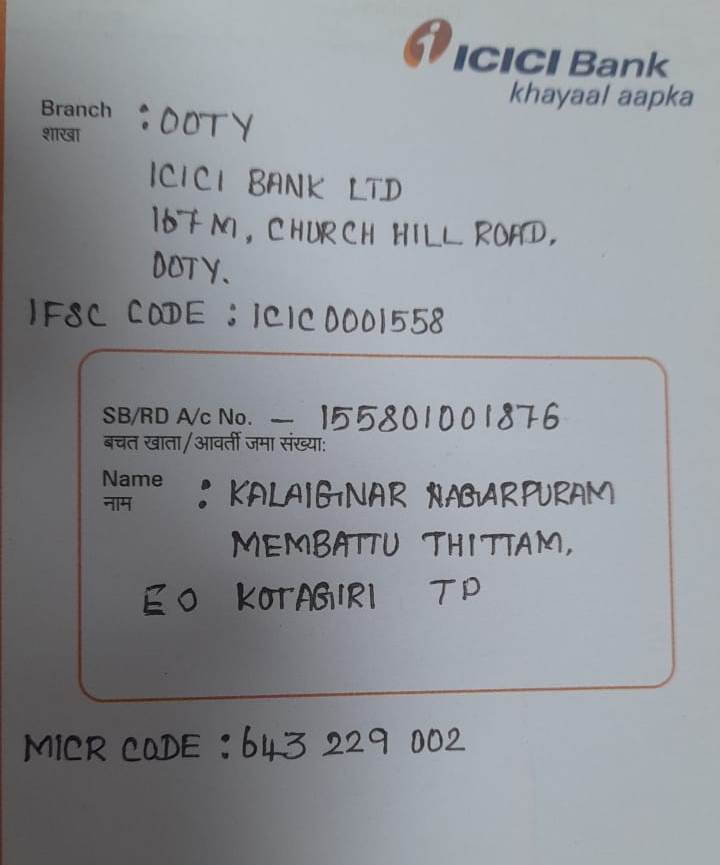 ICICI Bank
khayaal aapka
Branch : OOTY
शाखा
ICICI BANK LTD
167 M, CHURCH HILL ROAD,
OOTY.
IFSC CODE : ICIC0001558
SB/RD A/c No. – 155801001876
बचत खाता/आवर्ती जमा संख्या:
Name : KALAIGNAR NAGARPURAM
नाम
MEMBATTU THITTAM,
EO KOTAGIRI TP
MICR CODE : 643 229 002